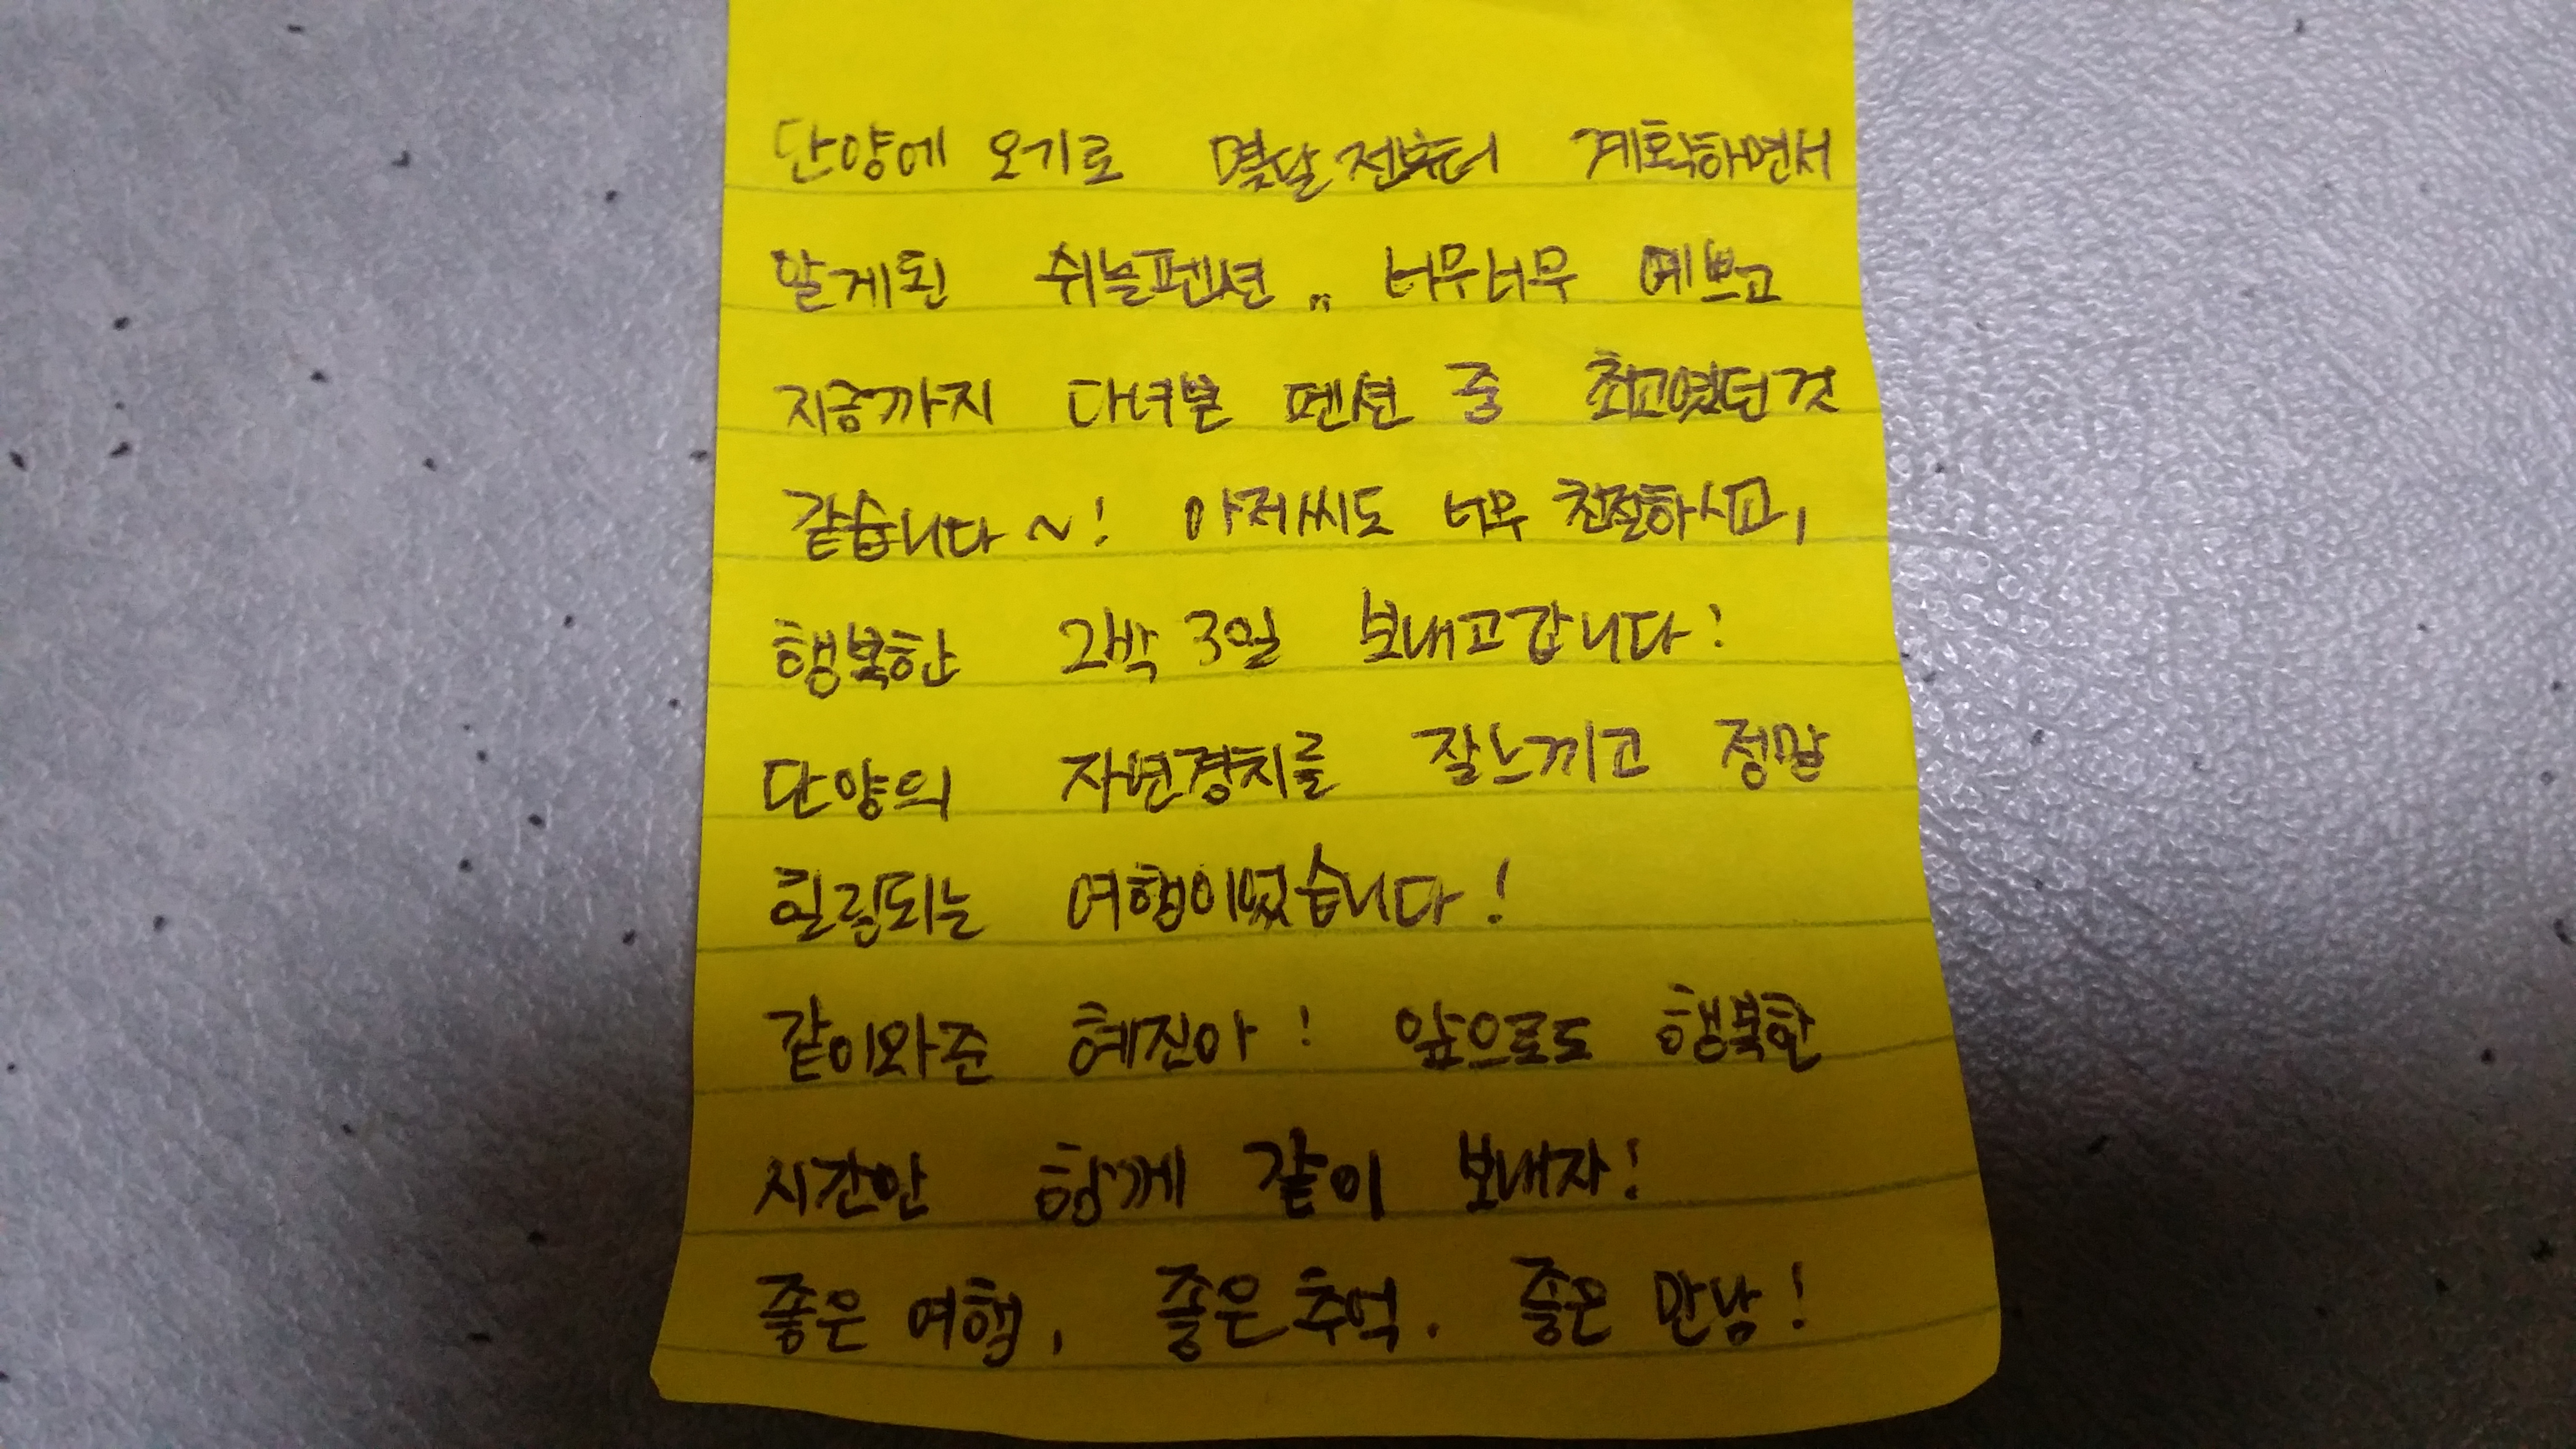 단양에 오기로 몇달전부터 계획하면서
알게된 쉬늴펜션 .. 너무너무 예쁘고
지금까지 다녀본 펜션 중 최고였던것
같습니다~! 아저씨도 너무 친절하시고,
행복한 2박 3일 보내고갑니다!
단양의 자연경치를 잘느끼고 정말
힐링되는 여행이었습니다!
같이와준 혜진아! 앞으로도 행복한
시간만 함께 같이 보내자!
좋은 여행, 좋은추억. 좋은 만남!